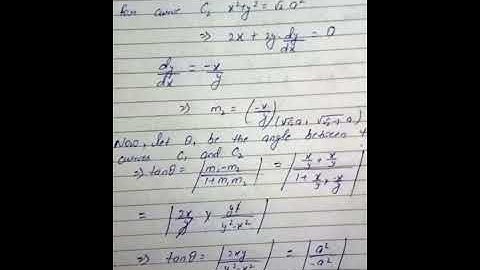 for curve C₂ x²+y² = √2 a²
⇒ 2x + 2y dy/dx = 0
dy/dx = -x/y
⇒ m₂ = (-x/y)
Now, let θ, be the angle between
curves C₁ and C₂
⇒ tanθ = |m₁-m₂ / 1+m₁m₂| = |x/y + x/y / 1+ x/y · x/y|
= |2x/y × y² / y²-x²|
⇒ tanθ = |2xy / y²-x²| = |a² / -a²|